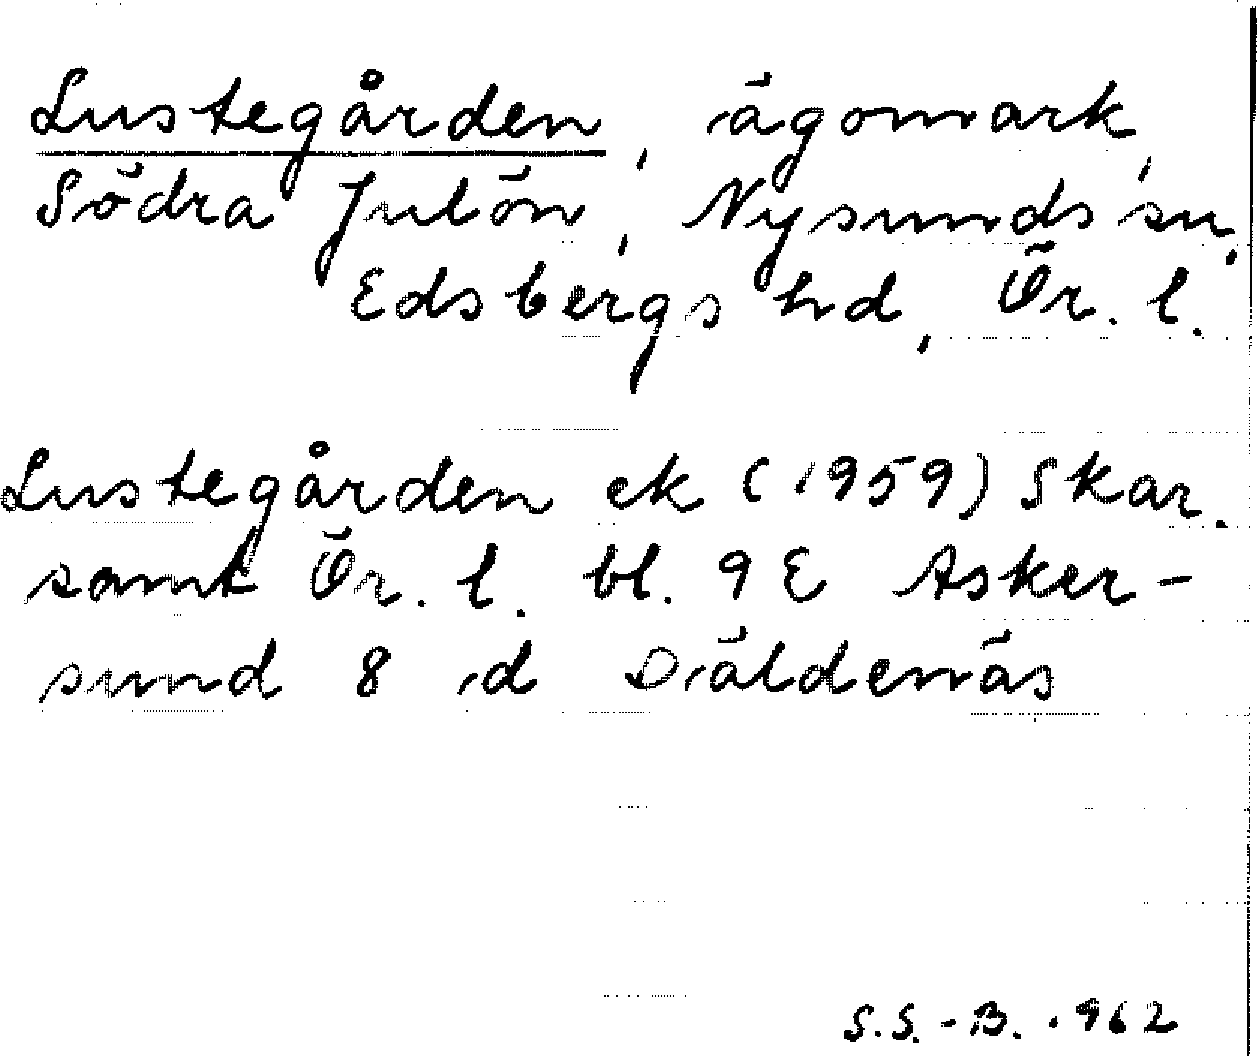 Lustegården, ägomark,
Södra Julön, Nysunds sn,
Edsbergs hd, Ör. l.
Lustegården ek (1959) Skar.
samt Ör. l. bl. 9 E Asker-
sund 8 d Däldenäs
S.S.-B. 1962